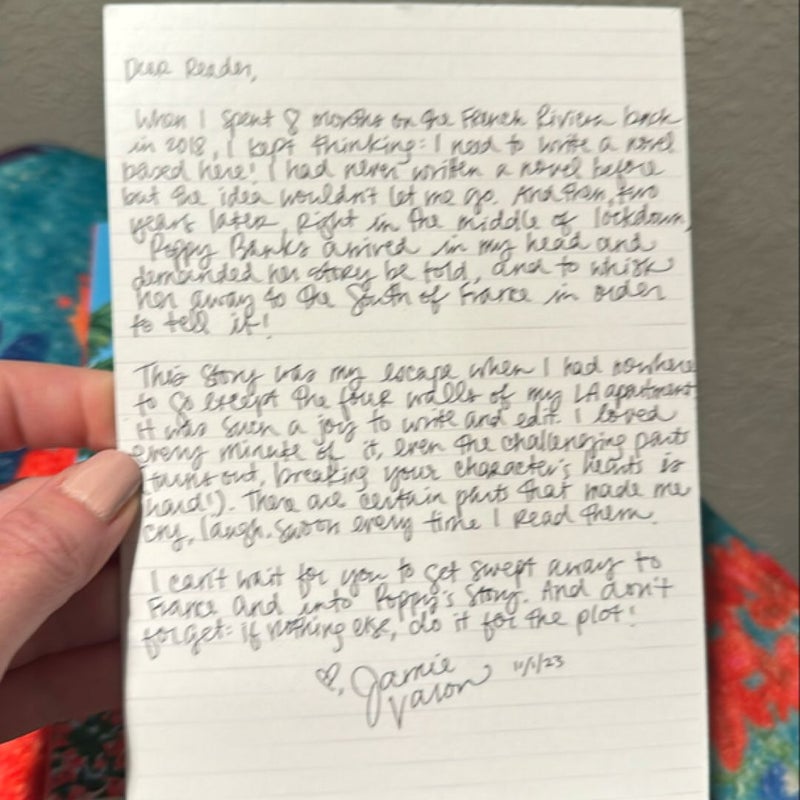 Dear Reader,
When I spent 8 months on the French Riviera back
in 2018, I kept thinking: I need to write a novel
based here! I had never written a novel before
but the idea wouldn't let me go. And then, two
years later, right in the middle of lockdown,
Poppy Banks arrived in my head and
demanded her story be told, and to whisk
her away to the South of France in order
to tell it!
This story was my escape when I had nowhere
to go except the four walls of my LA apartment
It was such a joy to write and edit. I loved
every minute of it, even the challenging parts
(turns out, breaking your character's hearts is
hard!). There are certain parts that made me
cry, laugh, swoon every time I read them.
I can't wait for you to get swept away to
France and into Poppy's story. And don't
forget: if nothing else, do it for the plot!
♡, Jamie 11/1/23
Varon